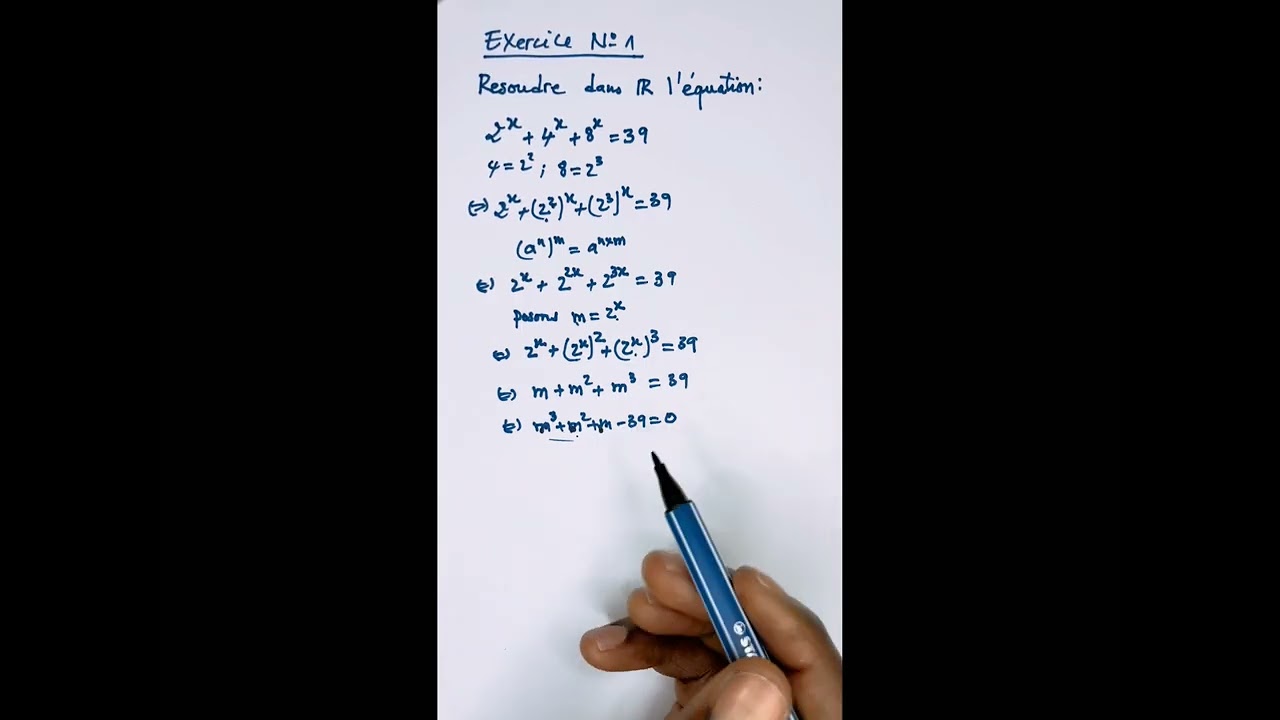 Exercice N° 1
Resoudre dans ℝ l'équation:
2ˣ + 4ˣ + 8ˣ = 39
4 = 2² ; 8 = 2³
⇔ 2ˣ + (2²)ˣ + (2³)ˣ = 39
(aⁿ)ᵐ = aⁿˣᵐ
⇔ 2ˣ + 2²ˣ + 2³ˣ = 39
Posons m = 2ˣ
⇔ 2ˣ + (2ˣ)² + (2ˣ)³ = 39
⇔ m + m² + m³ = 39
⇔ m³ + m² + m - 39 = 0